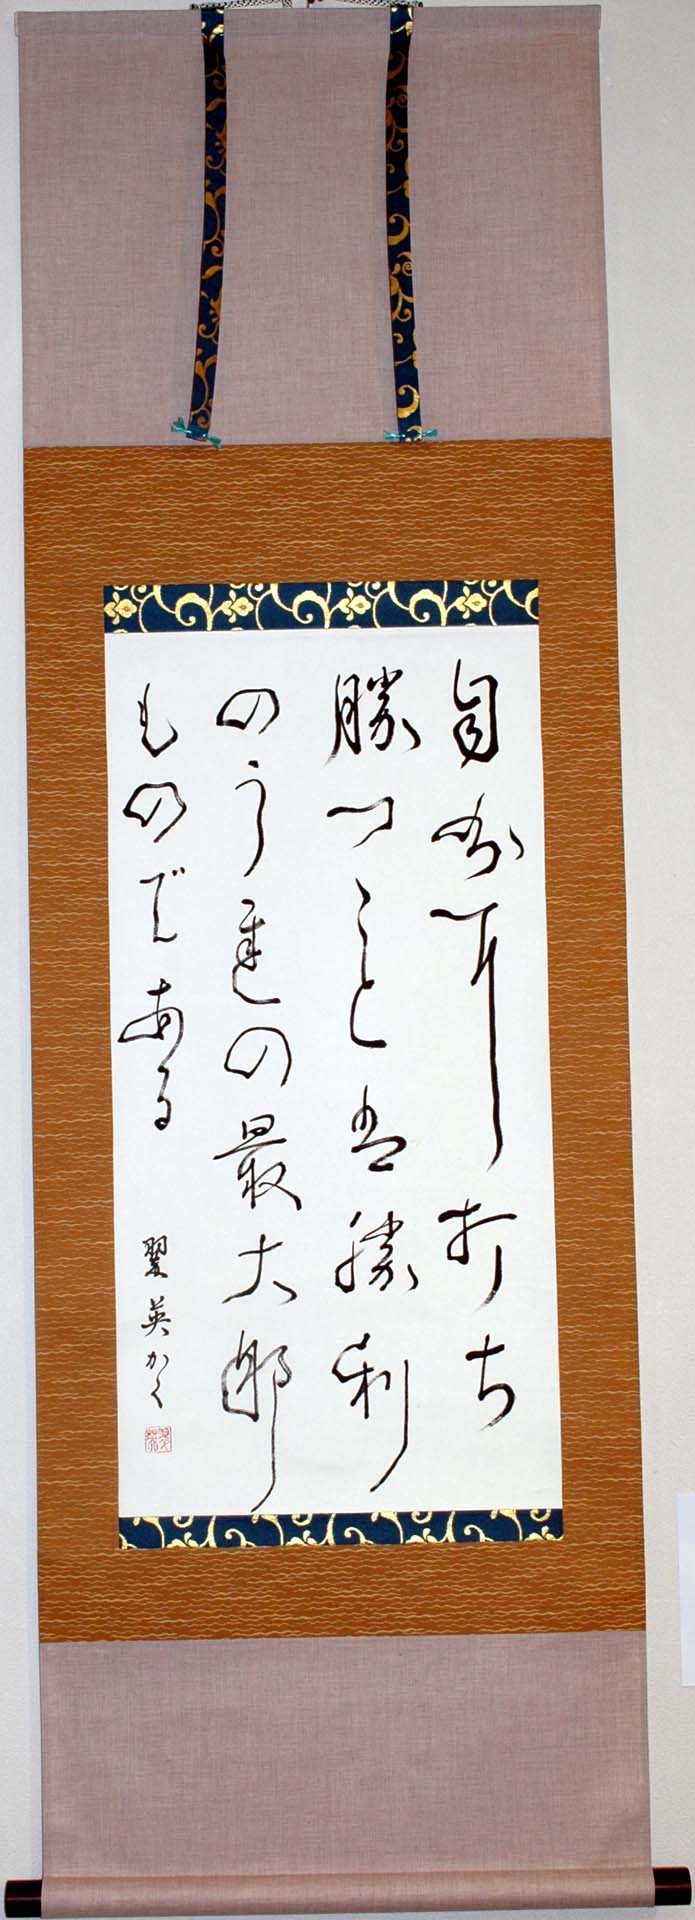 自分に打ち
勝つことは勝利
のうちの最大な
ものである
翠英かく